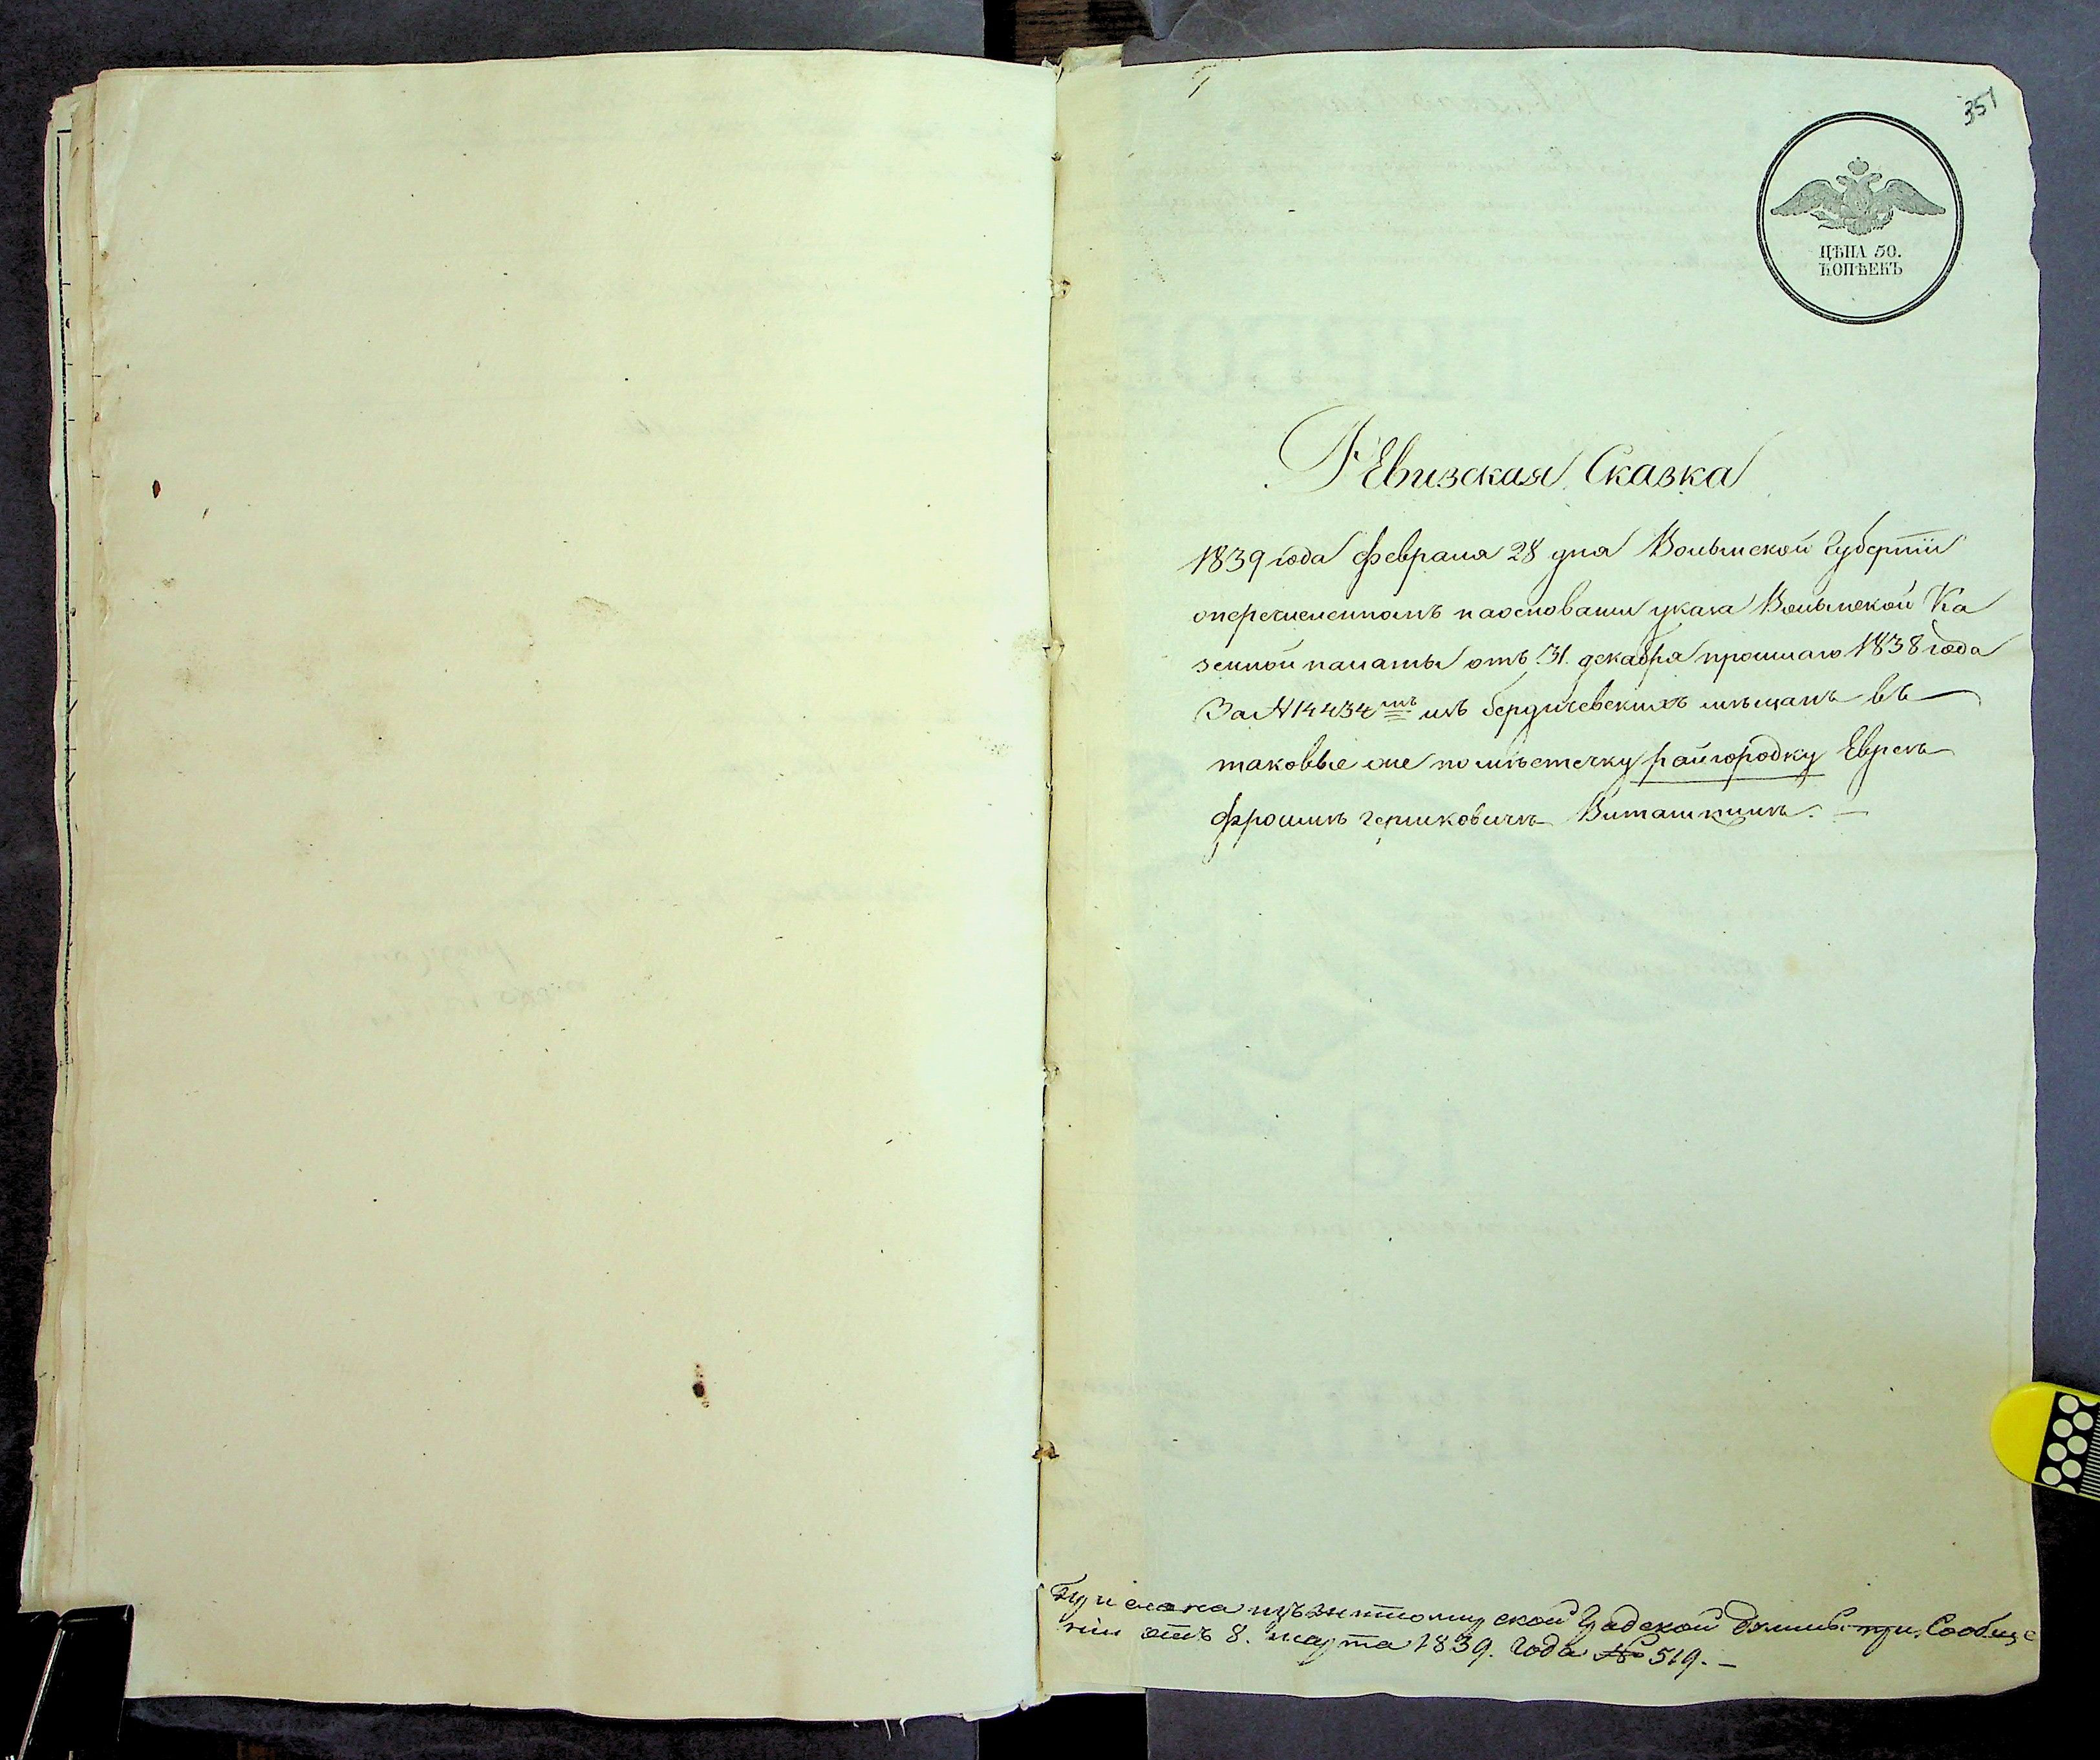 351
ЦѢНА 50.
КОПѢЕКЪ
Ревизская Сказка
1839 года февраля 28 дня Волынской Губернiи
оперечисленномъ наосновании указа Волынской Ка
зенной палаты отъ 31. декабря прошлаго 1838 года
За № 14434мъ изъ бердичевскихъ мѣщанъ въ
таковые же по мѣстечку райгородку Евреѣ
Фроимъ Гершковичъ Виташкинъ. —
Прислана изъ Житомирской Градской Думы при Сообще
нiи отъ 8. марта 1839. года № 519. —